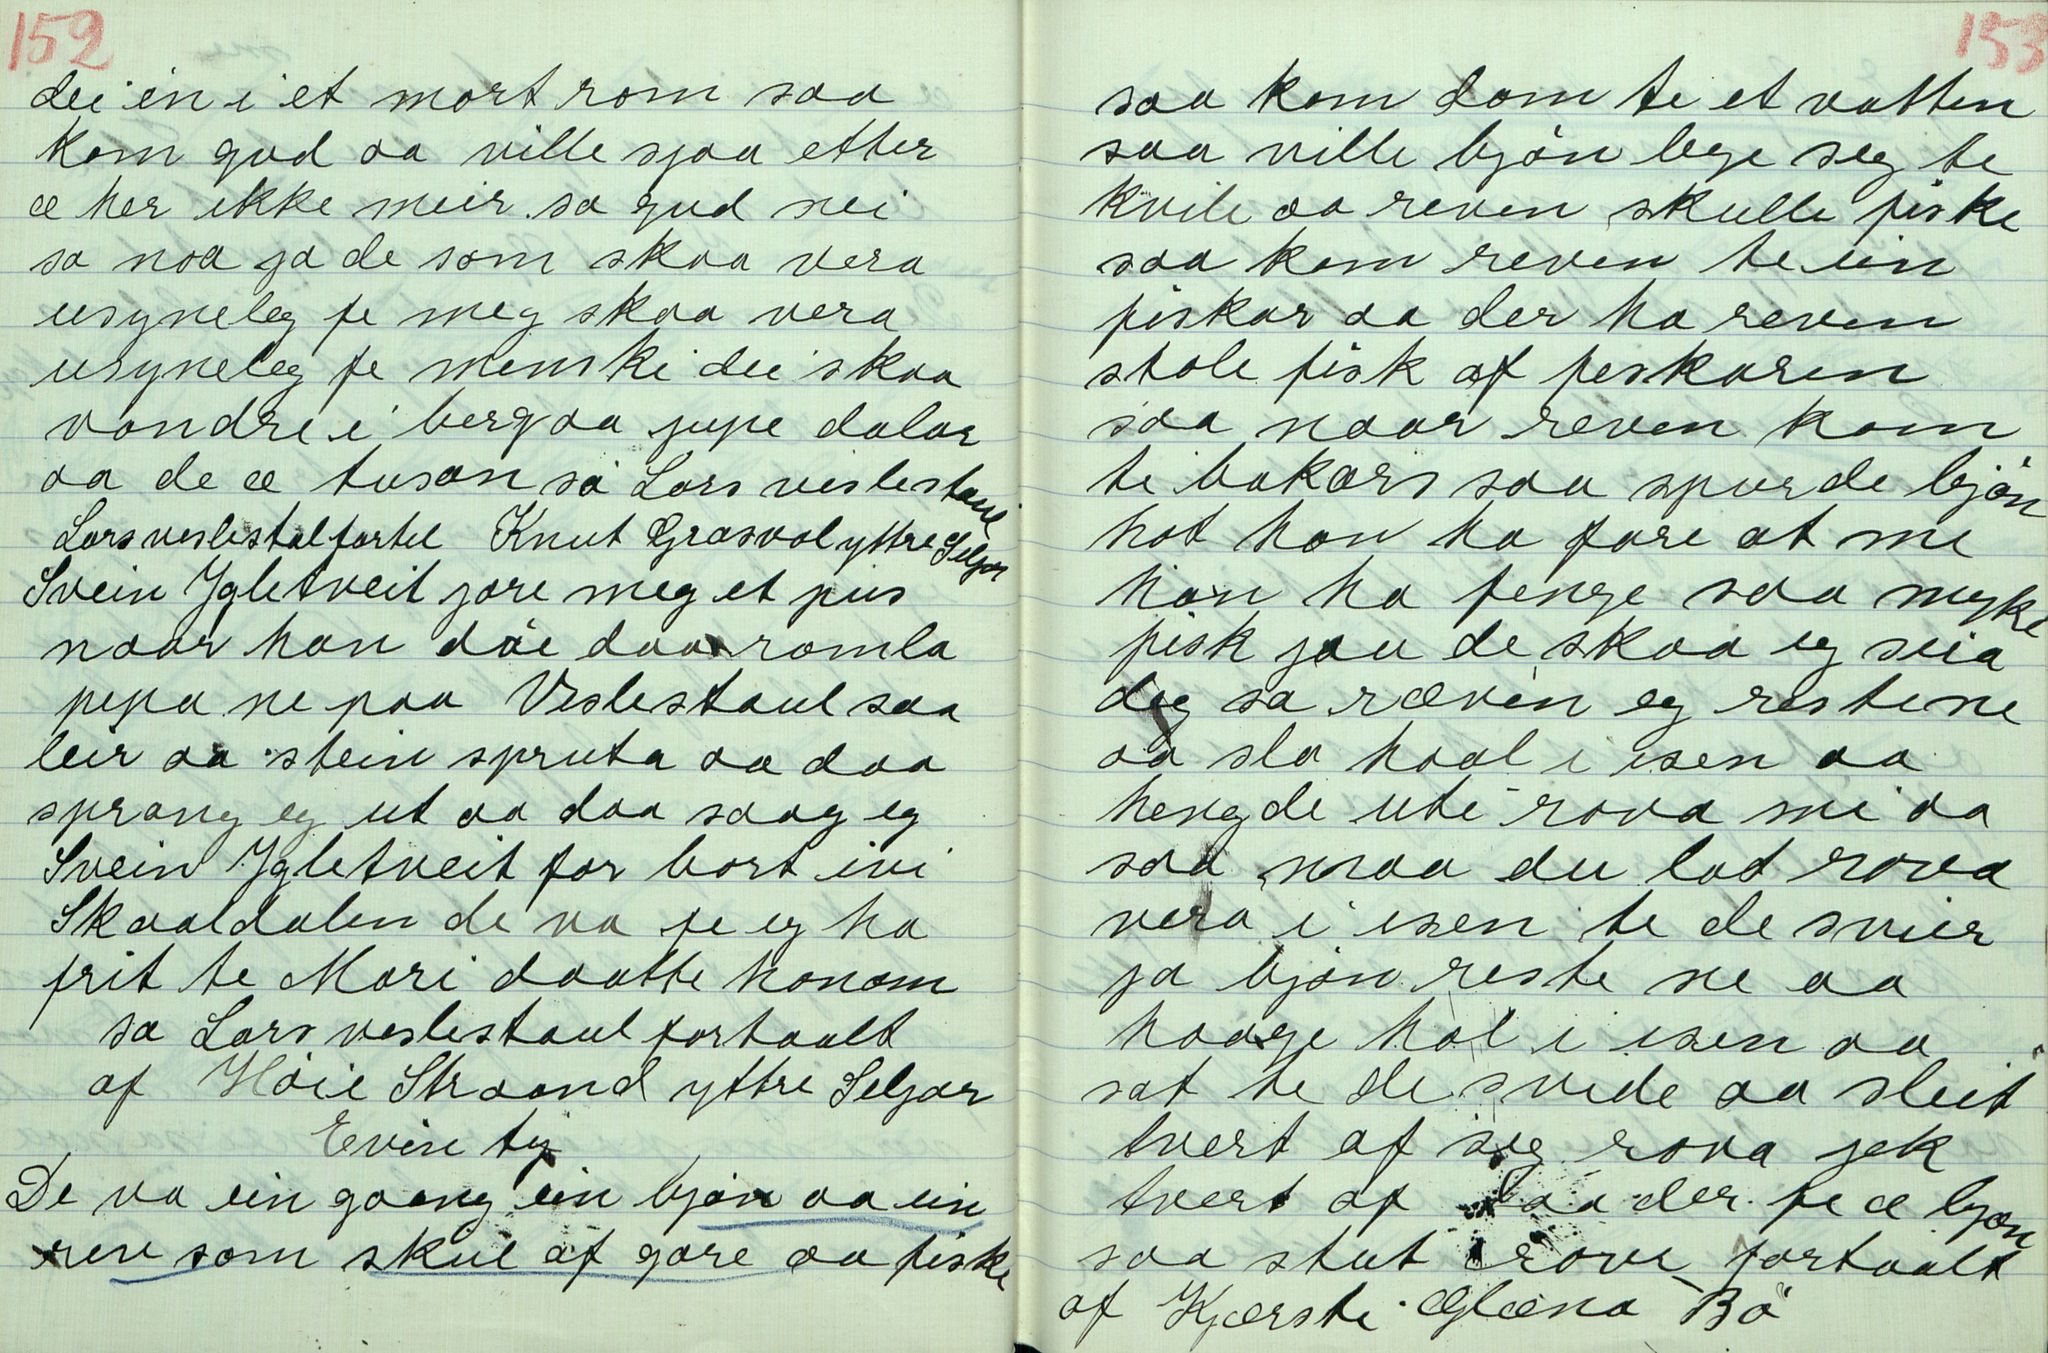 152
dei in i et mort rom saa
kom gud aa ville sjaa etter
æ her ikke meir sa gud nei
sa noa ja de som skaa vera
usyneleg fe meg skaa vera
usyneleg fe menski dei skaa
vandre i berg aa jupe dalar
aa de æ tusan sa Lars veslestaul
Lars veslestal fortel Knut Grasvol yttre Seljor
Svein Ygletveit jore meg et pus
naar han döe daa ramla
pepa ne paa Veslestaul saa
leir aa stein spruta aa daa
sprang eg ut aa daa saag eg
Svein Ygletveit for bort ivi
Skaaldalen de va fe eg ha
frit te Mari daatte honom
sa Lars veslestaul fortaalt
af Höie Straand yttre Seljor
Evinty
De va ein gaang ein bjön aa ein
rev som skul af gare aa fiske
153
saa kom dom te et vatten
saa ville bjön lege seg te
kvile aa reven skulle fiske
saa kom reven te ein
fiskar aa der ha reven
stole fisk af feskaren
saa naar reven kom
te bakars saa spurde bjön
hot han ha fare at me
han ha fenge saa myke
fisk jau de skaa eg seia
deg sa ræven eg reste ne
aa sla haal i isen aa
hengde uti rova mi aa
saa maa du lat rova
vera i isen te de svier
ja bjön reste ne aa
haage hal i isen aa
sat te de svide aa sleit
tvert af seg rova jek
tvert af saa der fe æ bjön
saa stut i rove fortaalt
af Kjærsti Glæna Bö